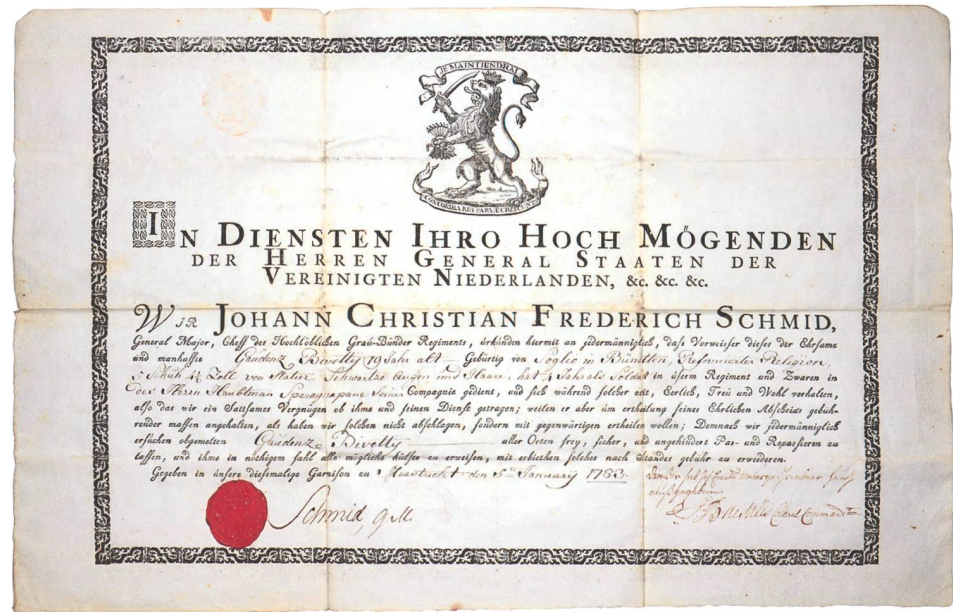 JE MAINTIENDRAI
CONCORDIA RES PARVÆ CRESCUNT
IN DIENSTEN IHRO HOCH MÖGENDEN
DER HERREN GENERAL STAATEN DER
VEREINIGTEN NIEDERLANDEN, &c. &c. &c.
WIR JOHANN CHRISTIAN FREDERICH SCHMID,
General Major, Cheff des Hochlöblichen Grau-Bünder Regiments, örkünden hiermit an jedermänniglich, dass Vorweiser dieses der Ehrsame
und manhaffte Gaudenz Bivetty 79 Jahr alt Gebürtig von Soglio in Bündten, Reformierter Religion,
5 Schüh 4½ Zoll von Statur, Schwartze augen und Haare, hat 4 Jahr als Soldat in üserm Regiment und Zwaren in
des Herrn Haubtman Compagnie gedient, und sich während solcher zeit, Eerlich, Treü und Wohl verhalten,
also das wir ein Sattsames Vergnügen ob ihme und seinen Dienst getragen; weilen er aber üm ertheilung seines Ehrlichen Abscheids gebüh-
render massen angehalten, als haben wir solchen nicht abschlagen, sondern mit gegenwärtigen ertheilen wollen; Demnach wir jedermänniglich
ersuchen obgemelten Gaudenz Bivetty aller Orten frey, sicher, und ungehindert Pas- und Repassieren zu
lassen, und ihme in nöthigem fahl alle mögliche hülffe zu erweisen, mit erbiethen solches nach Standes gebühr zu erwideren.
Gegeben in ünsere diesemalige Garnison zu Maestricht den 5ten January 1783
Schmid g.M.
Colonel Command